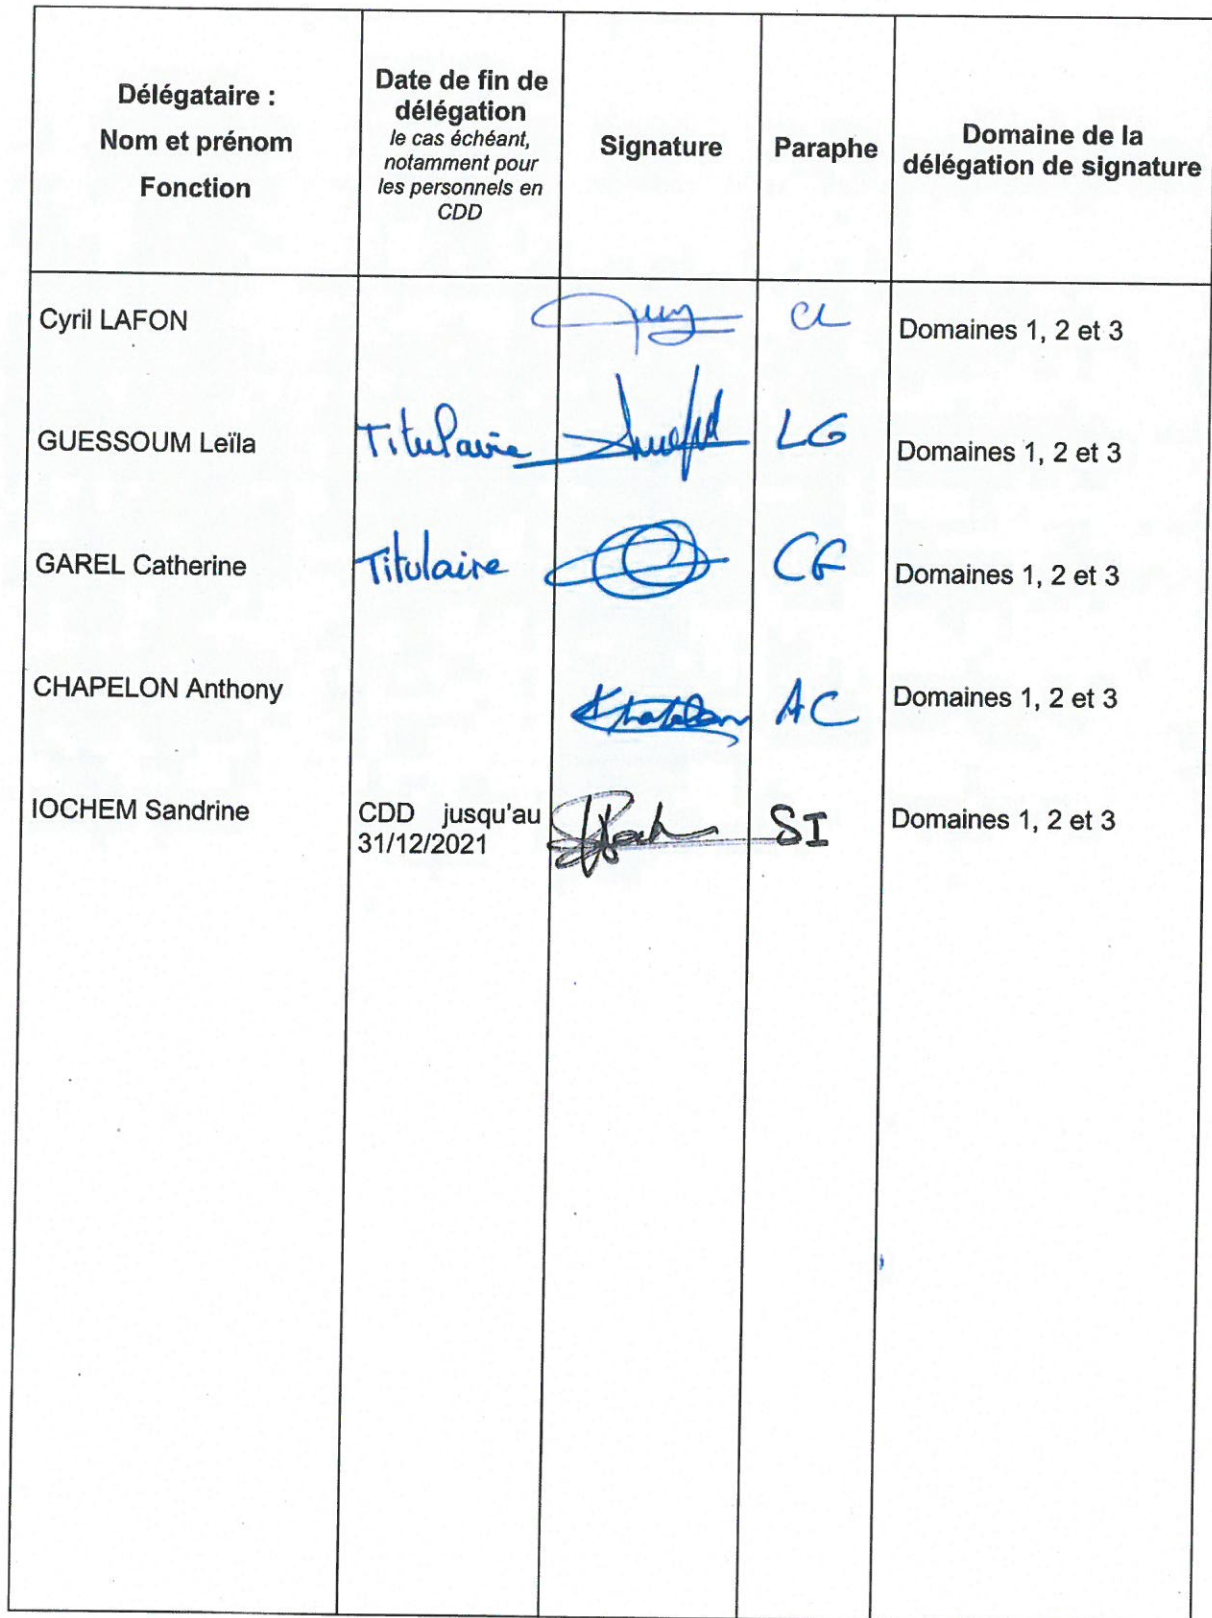 Délégataire :
Nom et prénom
Fonction
Date de fin de
délégation
le cas échéant,
notamment pour
les personnels en
CDD
Signature
Paraphe
Domaine de la
délégation de signature
Cyril LAFON
CL
Domaines 1, 2 et 3
GUESSOUM Leïla
Titulaire
LG
Domaines 1, 2 et 3
GAREL Catherine
Titulaire
CG
Domaines 1, 2 et 3
CHAPELON Anthony
AC
Domaines 1, 2 et 3
IOCHEM Sandrine
CDD jusqu'au
31/12/2021
SI
Domaines 1, 2 et 3